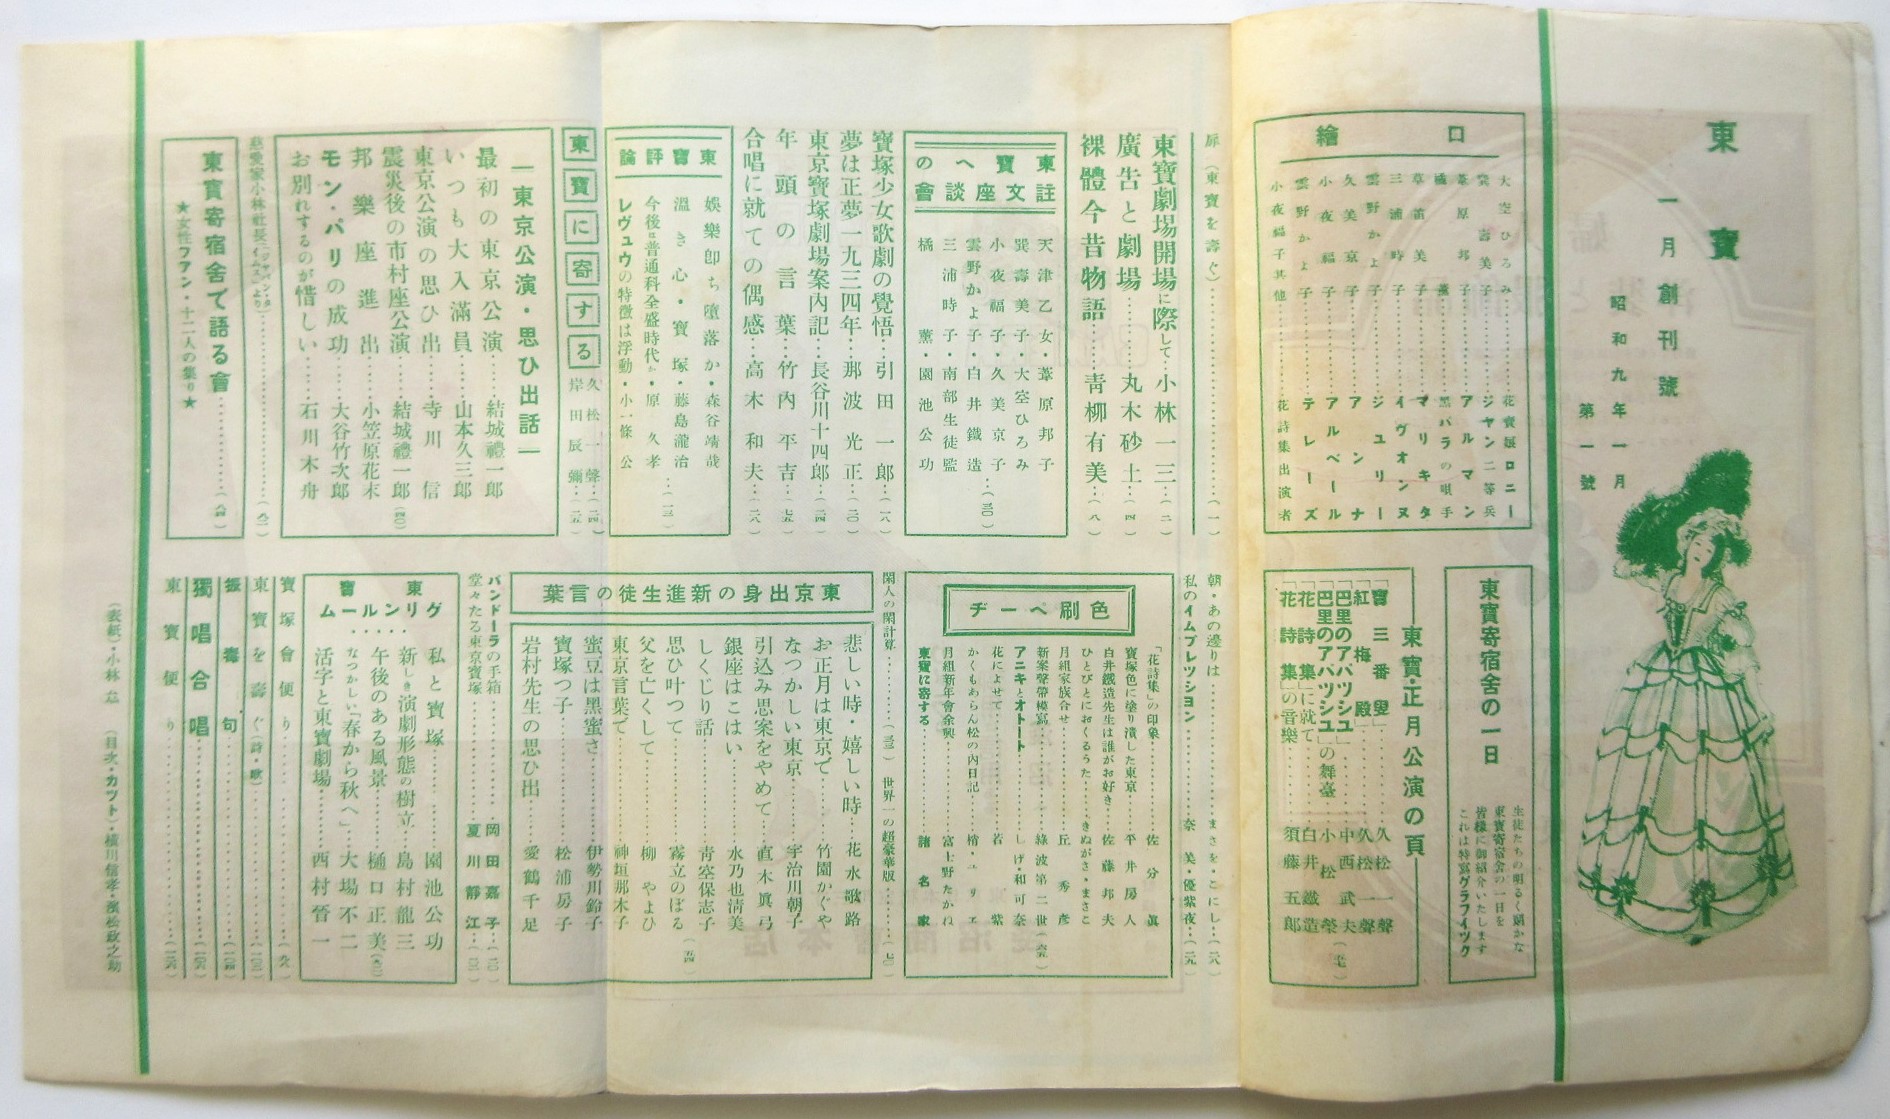 東寶
一月創刊號
昭和九年一月
第一號
口繪
大空ひろみ……花賣娘ロニー
巽壽美子……ジヤン二等兵
葦原邦子……アルマン
橘薫……黑バラの唄手
草笛美子……マリキタ
三浦時子……イヴオンヌ
雲野かよ子……ジユリー
久美京子……アンナ
小夜福子……アルベール
雲野かよ子……テレーズ
小夜福子其他……花詩集出演者
東寶寄宿舍の一日
生徒たちの明るく朗かな
東寶寄宿舍の一日を
皆樣に御紹介いたします
これは特寫グラフイツク
東寶・正月公演の頁
「寶三番叟」……久松一聲
「紅梅殿」……久松一聲
「巴里のアパツシユ」……中西武夫
「巴里のアパツシユ」の舞臺……小松榮
「花詩集」に就て……白井鐵造
「花詩集」の音樂……須藤五郎
(六七)
扉(東寶を壽ぐ)……(一)
東寶劇場開場に際して…小林一三…(二)
廣告と劇場……丸木砂土…(四)
裸體今昔物語……靑柳有美…(八)
東寶への
註文座談會
天津乙女・葦原邦子
巽壽美子・大空ひろみ
小夜福子・久美京子
雲野かよ子・白井鐵造
三浦時子・南部生徒監
橘薫・園池公功
…(三〇)
寶塚少女歌劇の覺悟…引田一郎…(一八)
夢は正夢一九三四年…那波光正…(二〇)
東京寶塚劇場案內記…長谷川十四郎…(二四)
年頭の言葉…竹內平吉…(七五)
合唱に就ての偶感…高木和夫…(二八)
東寶評論
娛樂卽ち墮落か・森谷靖哉
溫き心・寶塚・藤島瀧治
今後は普通科全盛時代か・原久孝
レヴュウの特徴は浮動・小一條公
…(一三)
東寶に寄する
久松一聲…(二四)
岸田辰彌…(二五)
―東京公演・思ひ出話―
最初の東京公演……結城禮一郎
いつも大入滿員……山本久三郎
東京公演の思ひ出……寺川信
震災後の市村座公演……結城禮一郎
邦樂座進出……小笠原花末
モン・パリの成功……大谷竹次郎
お別れするのが惜しい……石川木舟
(四〇)
慈愛家小林社長……
東寶寄宿舍で語る會……(八四)
★女性フアン・十二人の集り★
朝・あの邊りは……まさを・こにし…(二八)
私のイムプレツシヨン……奈美・優紫夜…(二九)
色刷ペーヂ
「花詩集」の印象……佐分眞
寶塚色に塗り潰した東京……平井房人
白井鐵造先生は誰がお好き……佐藤邦夫
ひとびとにおくるうた……きぬがさ・まさこ
月組家族合せ……丘秀彥
新案聲帶模寫……綠波第二世
アニキとオトート……しげ・和可奈
花によせて……若紫
かくもあらん松の內日記……楕・ユリヱ
月組新年會余興……富士野たかね
東寶に寄する……諸名家
閑人の閑計算……世界一の超豪華版……(七〇)
東京出身の新進生徒の言葉
悲しい時・嬉しい時…花水歌路
お正月は東京で……竹園かぐや
なつかしい東京……宇治川朝子
引込み思案をやめて…直木眞弓
銀座はこはい……水乃也淸美
しくじり話……靑空保志子
思ひ叶つて……霧立のぼる
父を亡くして……柳やよひ
東京言葉で……神垣那木子
蜜豆は黑蜜さ……伊勢川鈴子
寶塚つ子……松浦房子
岩村先生の思ひ出……愛鶴千足
(五四)
パンドーラの手箱……岡田嘉子
堂々たる東京寶塚……夏川靜江
東寶
グリンルーム
私と寶塚……園池公功
新しき演劇形態の樹立…島村龍三
午後のある風景……樋口正美
なつかしい「春から秋へ」…大場不二
活字と東寶劇場……西村晉一
寶塚會便り……
東寶を壽ぐ(詩・歌)……(一〇〇)
振壽句……
獨唱合唱……
東寶便り……
(表紙)・小林 (目次・カツト)・橫川信孝・濱松政之助